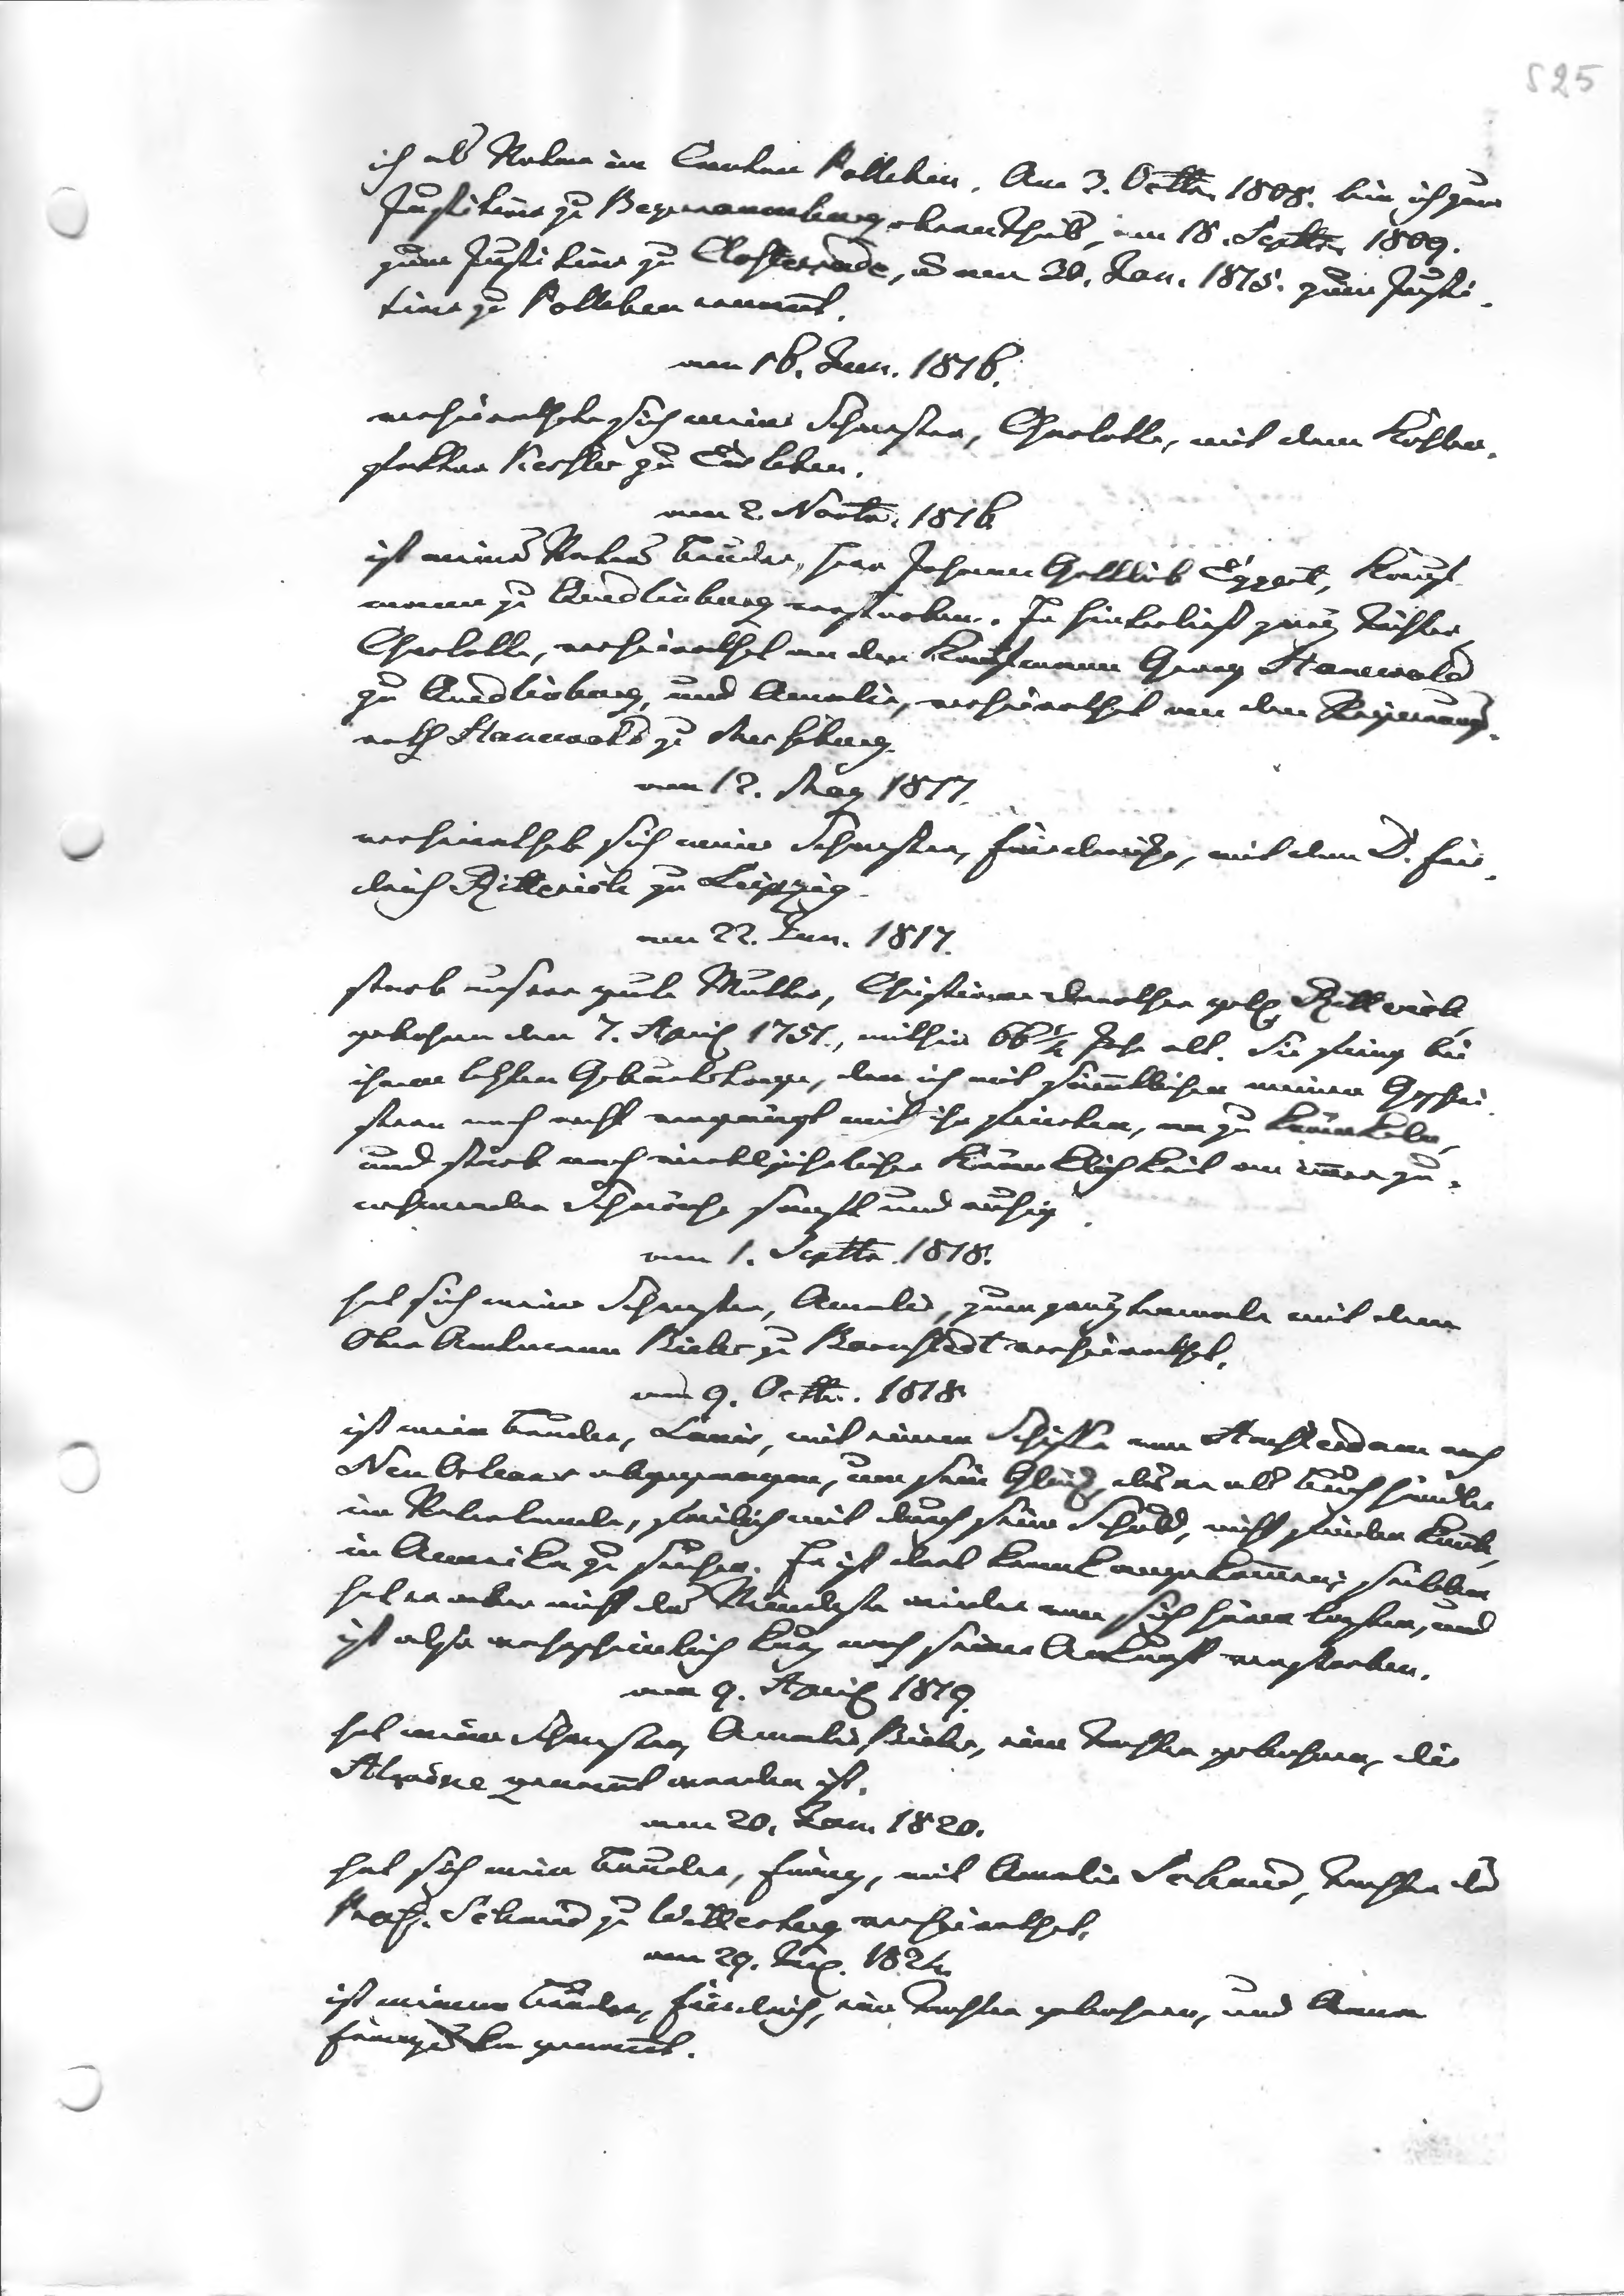 S 25
ich als Notar im Canton Polleben. Am 3. Octbr. 1808. bin ich zum
Justitiar zu Beyernaumburg oberen Theils, am 18. Septbr. 1809.
zum Justitiar zu Closterrode, u. am 20. Jan. 1815. zum Justi-
tiar zu Polleben ernannt.
am 16. Jun. 1816.
verheirathete sich meine Schwester, Charlotte, mit dem
Kessler zu Eisleben.
am 2. Novbr. 1816.
ist meines Vaters Bruder, Herr Johann Gottlieb Eggert, Kauf-
mann zu Quedlinburg verstorben. Er hinterließ zwey Töchter,
Charlotte, verheirathet an den Kaufmann Georg Hanewald
zu Quedlinburg, und Amalie, verheirathet an den Regierungs-
rath Hanewald zu Merseburg.
am 12. May 1817.
verheirathete sich meine Schwester, Friederike, mit dem D. Frie-
drich Ritterich zu Leipzig.
am 22. Jun. 1817.
starb unsere gute Mutter, Christiane Dorothee geb. Ritterich,
gebohren den 7. April 1751., mithin 66 1/4 Jahr alt. Sie fieng bei
ihrem letzten Geburtstage, den ich mit sämmtlichen meinen Geschwi-
stern noch recht vergnügt mit ihr feierten, an zu kränkeln,
und starb nach vierteljähriger Kränklichkeit an immer zu-
nehmender Schwäche sanft und ruhig.
am 1. Septbr. 1818.
hat sich meine Schwester, Amalie, zum zweytenmale mit dem
Ober Amtmann Bieler zu Barnstedt verheirathet.
am 9. Octbr. 1818.
ist mein Bruder, Louis, mit einem Schiffe von Amsterdam nach
Neu Orleans abgegangen, um sein Glück, das er als Buchhändler
im Vaterlande, freilich mit durch seine Schuld, nicht finden konnte,
in Amerika zu suchen. Er ist dort krank angekommen, seitdem
hat er aber nicht das Mindeste wieder von sich hören lassen, und
ist also wahrscheinlich kurz nach seiner Ankunft verstorben.
am 9. April 1819.
hat meine Schwester, Amalie Bieler, eine Tochter gebohren, die
genannt worden ist.
am 20. Jan. 1820.
hat sich mein Bruder, Franz, mit Amalie Schmid, Tochter des
Prof. Schmid zu Wittenberg verheirathet.
am 29. 182
ist meinem Bruder, Friedrich, eine Tochter gebohren, und Anna
Franziska genannt.